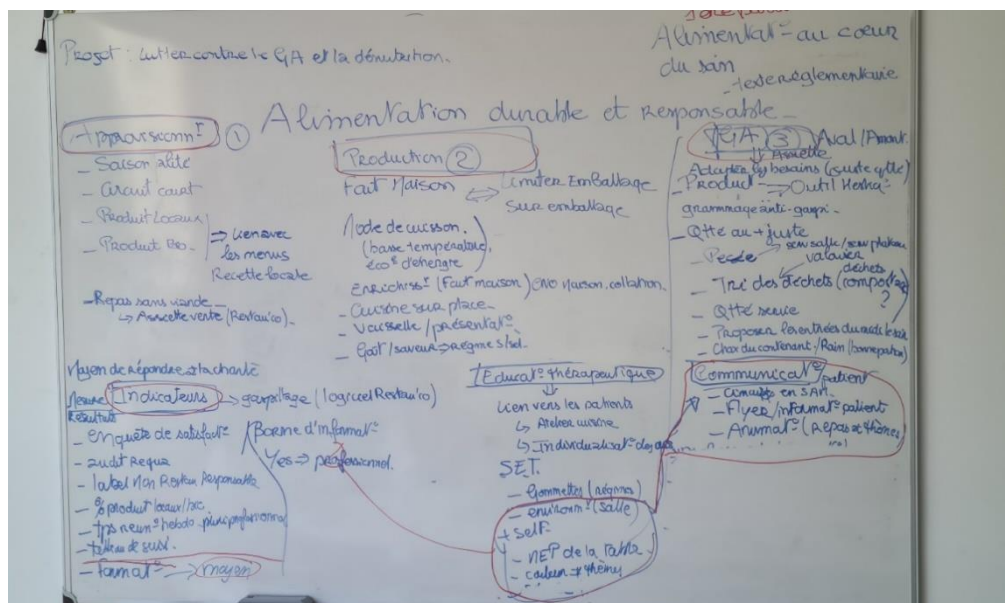 Projet : Lutter contre le GA et la dénutrition.
Alimentat° au coeur
du soin
- texte réglementaire
Alimentation durable et Responsable
Approvisionnt ①
- Saisonalité
- Circuit court
- Produit Locaux
- Produit Bio
⇒ Lien avec
les menus
Recette locale
- Repas sans viande
↳ Assiette verte (Restau'co)
Production ②
Fait Maison ⟺ Limiter Emballage
Sur emballage
Mode de cuisson.
(basse température,
éco° d'énergie
Enrichisst (Fait maison) CNO Maison. collation.
- Cuisine sur place
- Vaisselle / présentat°
- Goût / saveur ⇒ régime s/sel
GA ③ Aval / Amont
Assiette
Adapter les besoins (juste qtté)
- Product° → Outil
grammage anti-gaspi
- Qtté au + juste
- Pesée → sem salle / sem plateau
valoriser
- Tri des déchets (compostage
déchets
?
- Qtté servie
- Proposer les entrées du midi le soir
- Choix du contenant / Pain
Moyen de répondre à la charte
Mesure
Résultat
Indicateurs → gaspillage (logiciel Restau'co)
- enquête de satisfact°
- audit
- label Mon Restau Responsable
- % produit locaux/bio
- tps réun° hebdo pluriprofessionnel
- tableau de suivi.
- format° → moyen
Borme d'informat°
Yes ⇒ professionnel.
Educat° thérapeutique
Lien vers les patients
↳ Atelier cuisine
↳ Individualisat°
SET.
- Gommettes (régimes)
- environnt (salle)
+ Self
- MEP de la Table
- couleur → thème
Communicat° / patient
- en SAM
- Flyer / informat° patient
- Animat° (Repas à thèmes